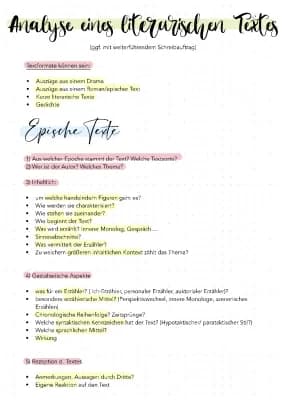 Analyse eines literarischen Textes
(ggf. mit weiterführendem Schreibauftrag)
Textformate können sein:
• Auszüge aus einem Drama
• Auszüge aus einem Roman/epischer Text
• Kurze literarische Texte
• Gedichte
Epische Texte
1) Aus welcher Epoche stammt der Text? Welche Textsorte?
2) Wer ist der Autor? Welches Thema?
3) Inhaltlich:
• um welche handelnden Figuren geht es?
• Wie werden sie charakterisiert?
• Wie stehen sie zueinander?
• Wie beginnt der Text?
• Was wird erzählt? innere Monolog, Gespräch ...
• Sinnabschnitte?
• Was vermittelt der Erzähler?
• Zu welchem größeren inhaltlichen Kontext zählt das Thema?
4) Gestalterische Aspekte
• was für ein Erzähler? (Ich-Erzähler, personaler Erzähler, auktorialer Erzähler)?
• besondere erzählerische Mittel? (Perspektivwechsel, innere Monologe, szenisches
Erzählen)
• Chronologische Reihenfolge? Zeitsprünge?
• Welche syntaktischen Kennzeichen hat der Text? (Hypotaktischer/ parataktischer Stil?)
• Welche sprachlichen Mittel?
• Wirkung
5) Rezeption d. Textes
• Anmerkungen, Aussagen durch Dritte?
• Eigene Reaktion auf den Text